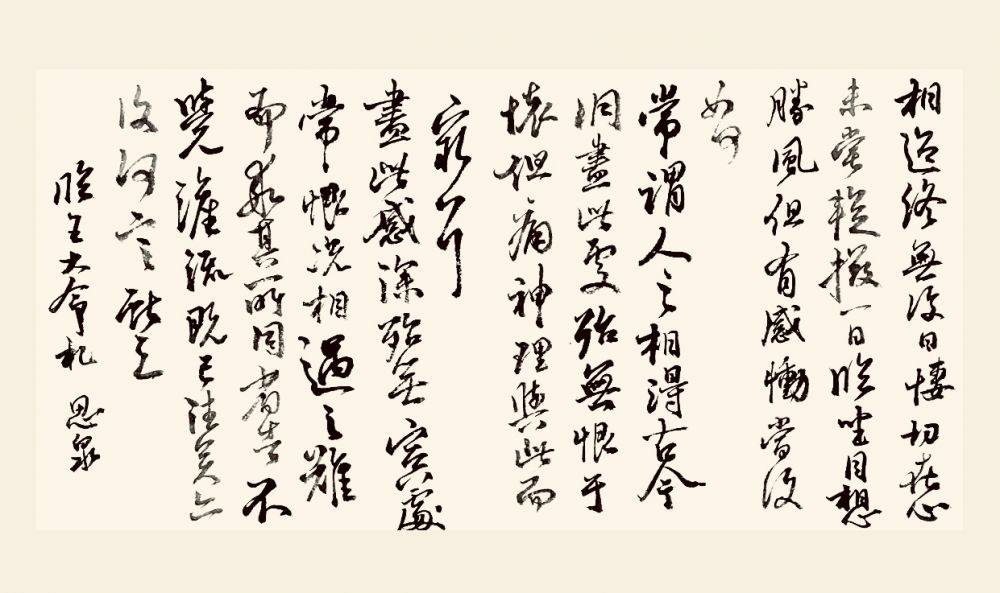 相迎终無復日悽切在心
未嘗暫撥一日臨坐目想
勝風但有感慟當復
如何
常謂人之相得古今
洞盡此處殆無恨于
懷但痛神理與此而
窮耳
盡此感深殆無冥處
常恨況相遇之難
而乖其所同省告不
覺灑流既已往矣亦
復何言獻之
臨王大令札 思泉